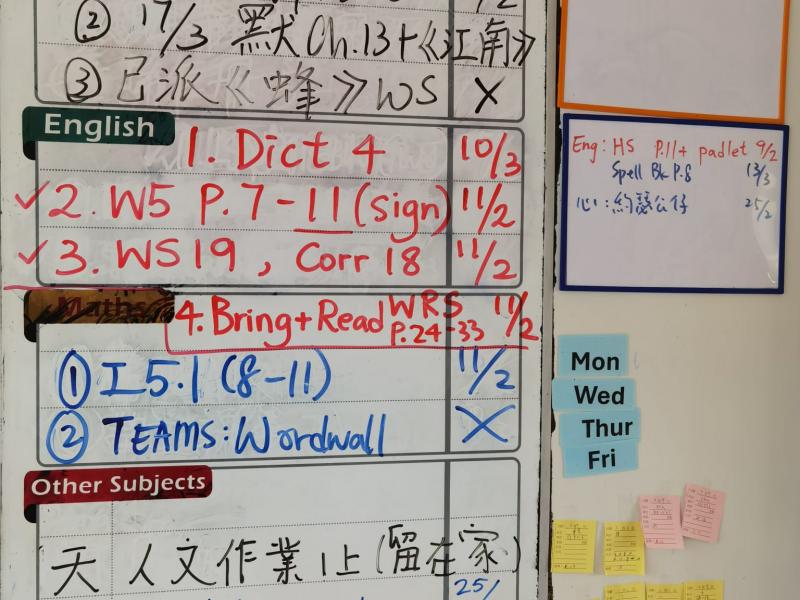 ② 17/3 默 Ch.13+《江南》
③ 已派《蜂》WS X
English
1. Dict 4 10/3
✓2. W5 P.7-11 (sign) 11/2
✓3. WS19, Corr 18 11/2
Maths
4. Bring+Read WRS P.24-33 11/2
① I5.1 (8-11) 11/2
② TEAMS: Wordwall X
Other Subjects
天 人文作業1上(留在家)
25/
Eng: HS P.11+ padlet 9/2
Spell Bk P.8 13/3
心:約瑟公仔 25/2
Mon
Wed
Thur
Fri